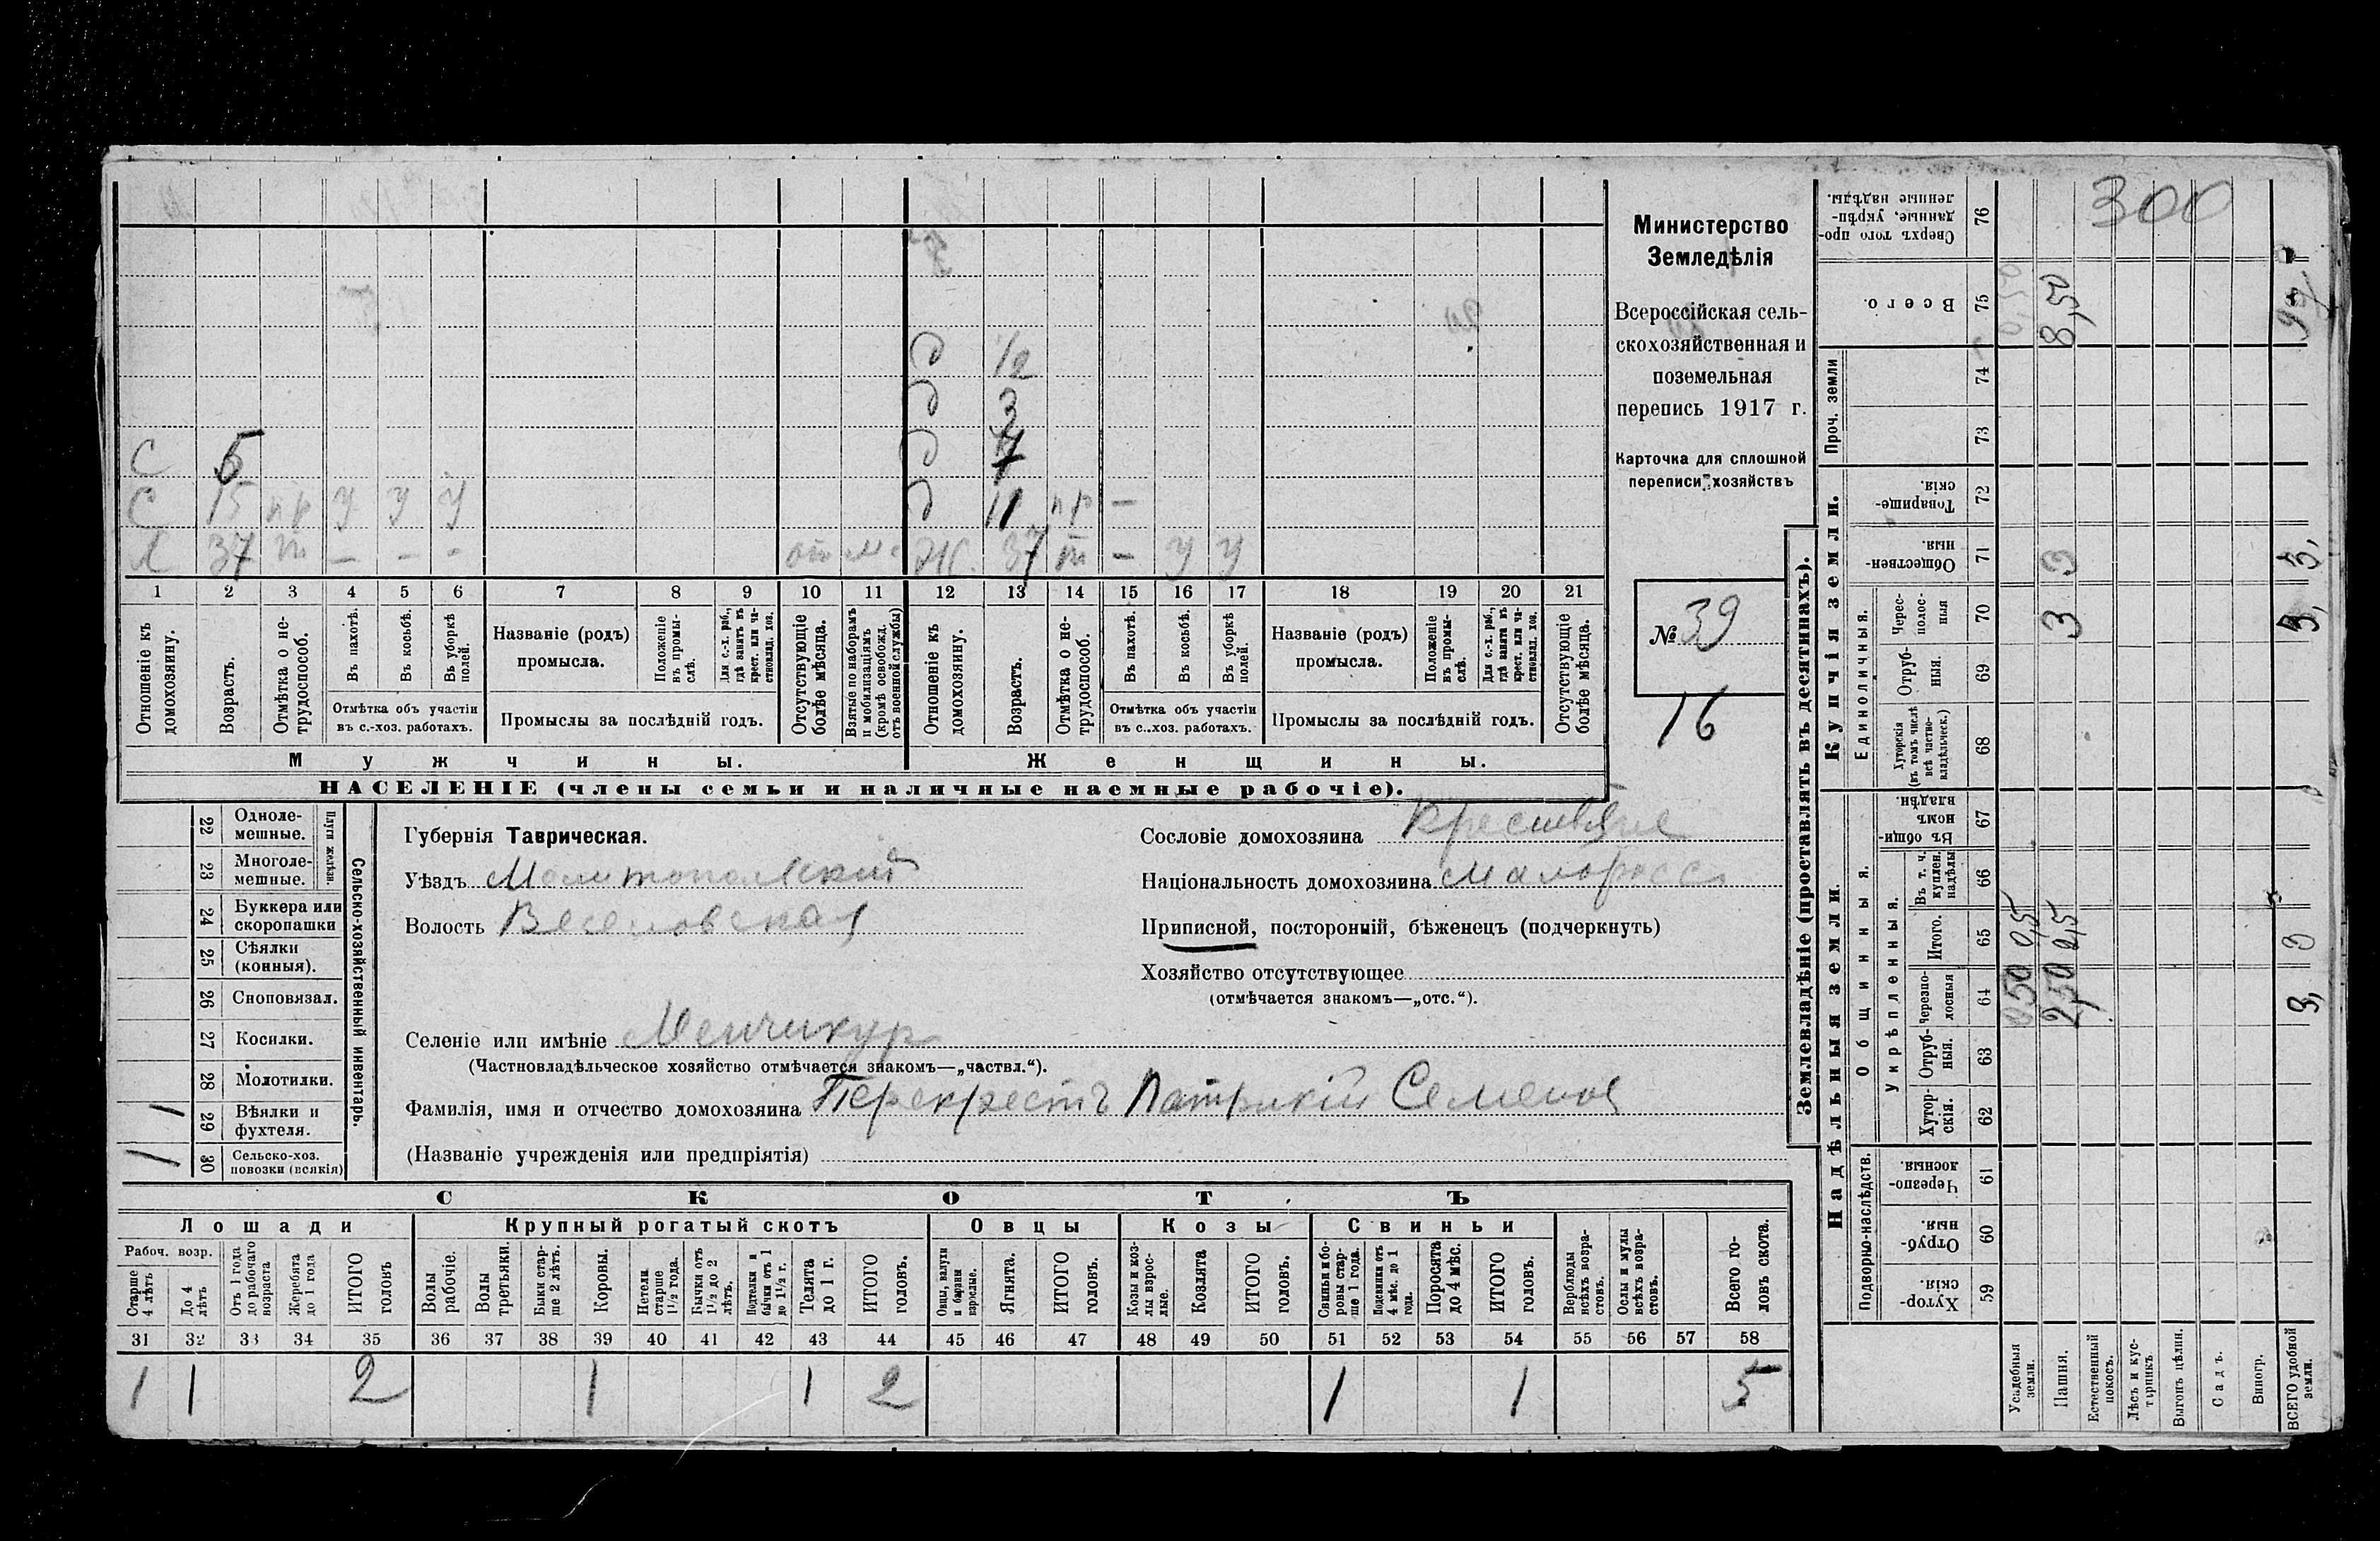 Министерство
Земледѣлія
Всероссійская сель-
скохозяйственная и
поземельная
перепись 1917 г.
Карточка для сплошной
переписи хозяйствъ
№ 39
16
300
д 12
д 3
С 5 д 7
С 15 пр у у у д 11 пр —
37 т — — - Ж. 37 т — у у
1 2 3 4 5 6 7 8 9 10 11 12 13 14 15 16 17 18 19 20 21
Отношеніе къ домохозяину.
Возрастъ.
Отмѣтка о не-трудоспособ.
Въ пахотѣ.
Въ косьбѣ.
Въ уборкѣ полей.
Отмѣтка объ участіи
въ с.-хоз. работахъ.
Названіе (родъ)
промысла.
Положеніе въ промы-слѣ.
Для с.-х. раб., гдѣ занятъ въ крест. или ча-стновлад. хоз.
Промыслы за послѣдній годъ.
Отсутствующіе болѣе мѣсяца.
Взятые по наборамъ и мобилизаціямъ (кромѣ освобожд. отъ военной службы)
Отношеніе къ домохозяину.
Возрастъ.
Отмѣтка о не-трудоспособ.
Въ пахотѣ.
Въ косьбѣ.
Въ уборкѣ полей.
Отмѣтка объ участіи
въ с.-хоз. работахъ.
Названіе (родъ)
промысла.
Положеніе въ промы-слѣ.
Для с.-х. раб., гдѣ занята въ крест. или ча-стновлад. хоз.
Промыслы за послѣдній годъ.
Отсутствующіе болѣе мѣсяца.
Мужчины. Женщины.
НАСЕЛЕНІЕ (члены семьи и наличные наемные рабочіе).
22 Одноле-мешные.
23 Многоле-мешные.
Плуги желѣзн.
24 Буккера или скоропашки
25 Сѣялки (конныя).
26 Сноповязал.
27 Косилки.
28 Молотилки.
29 Вѣялки и фухтеля. 1
30 Сельско-хоз. повозки (всякія) 1
Сельско-хозяйственный инвентарь.
Губернія Таврическая.
Уѣздъ Мелитопольскій
Волость Веселовская
Сословіе домохозяина Крестьяне
Національность домохозяина Малоросс
Приписной, посторонній, бѣженецъ (подчеркнуть)
Хозяйство отсутствующее
(отмѣчается знакомъ—„отс.“).
Селеніе или имѣніе Менчикур
(Частновладѣльческое хозяйство отмѣчается знакомъ—„частвл.“).
Фамилія, имя и отчество домохозяина Перекрестъ Патрикій Семенов
(Названіе учрежденія или предпріятія)
СКОТЪ
Лошади Крупный рогатый скотъ Овцы Козы Свиньи
Рабоч. возр.
Старше 4 лѣтъ
До 4 лѣтъ
Отъ 1 года до рабочаго возраста
Жеребята до 1 года
ИТОГО головъ
Волы рабочіе.
Волы третьяки.
Быки стар-ше 2 лѣтъ.
Коровы.
Нетели старше 1½ года.
Бычки отъ 1½ до 2 лѣтъ.
Подтелки и бычки отъ 1 до 1½ г.
Телята до 1 г.
ИТОГО головъ.
Овцы, валухи и бараны взрослые.
Ягнята.
ИТОГО головъ.
Козы и коз-лы взрос-лые.
Козлята
ИТОГО головъ.
Свиньи и бо-ровы стар-ше 1 года.
Подсвинки отъ 4 мѣс. до 1 года.
Поросята до 4 мѣс.
ИТОГО головъ.
Верблюды всѣхъ возра-стовъ.
Ослы и мулы всѣхъ возра-стовъ.
Всего го-ловъ скота.
31 32 33 34 35 36 37 38 39 40 41 42 43 44 45 46 47 48 49 50 51 52 53 54 55 56 57 58
1 1 2 1 1 2 1 1 5
Землевладѣніе (проставлять въ десятинахъ).
Надѣльныя земли. Купчія земли.
Подворно-наслѣдств.
Общинныя.
Укрѣпленныя.
Единоличныя.
Проч. земли
59 Хутор-скія.
60 Отруб-ныя.
61 Черезпо-лосныя.
62 Хутор-скія.
63 Отруб-ныя.
64 Черезпо-лосныя
65 Итого.
66 Въ т. ч. куплен. надѣлы
67 Въ общин-номъ владѣн.
68 Хуторскія (въ томъ числѣ всѣ частно-владѣльческ.)
69 Отруб-ныя.
70 Черес-полос-ныя
71 Обществен-ныя.
72 Товарище-скія.
73
74
75 Всего.
76 Сверхъ того про-данные, укрѣп-ленные надѣлы.
Усадебныя земли. 0,50 0,5
Пашня. 2,50 2,5 3 3 8,50
Естественный покосъ.
Лѣсъ и кус-тарникъ.
Выгонъ цѣлин.
Садъ.
Виногр.
ВСЕГО удобной земли. 3, 3, 3, 9